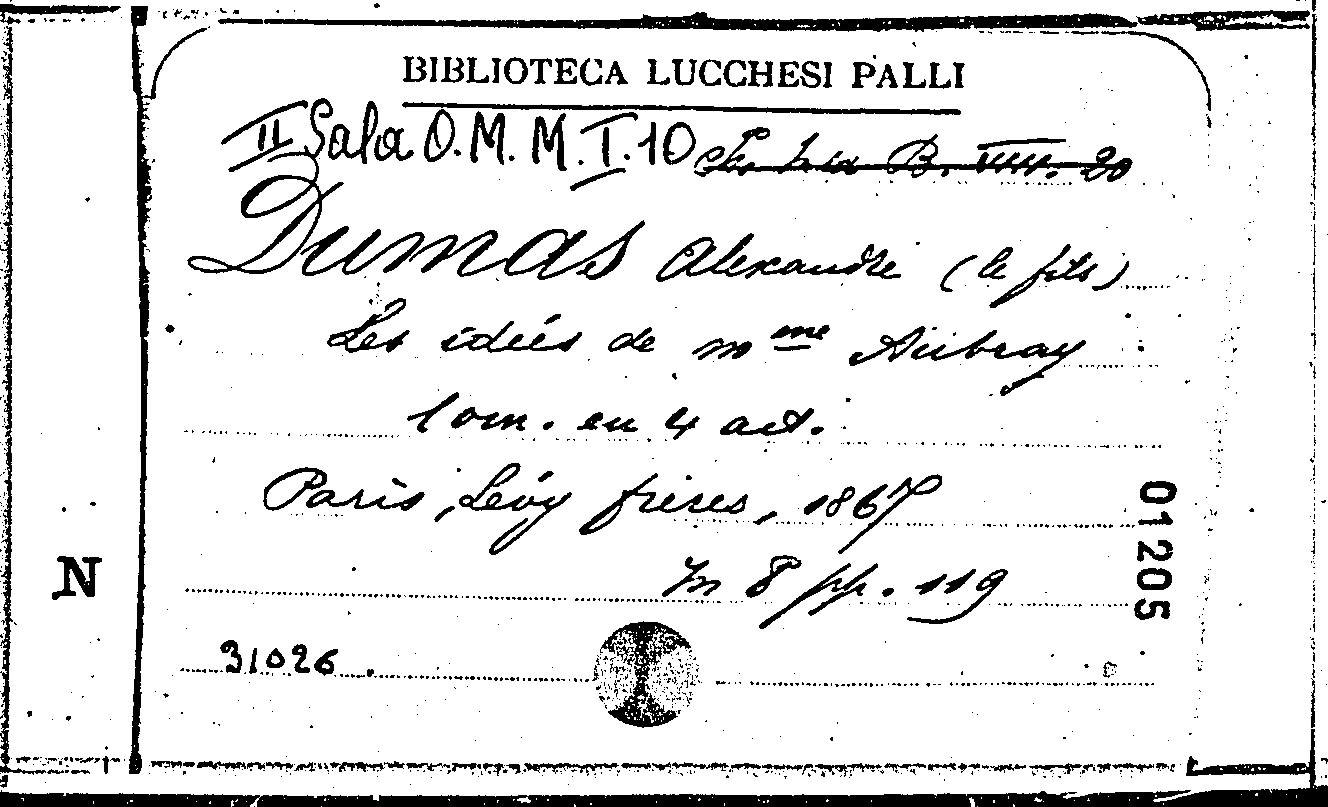 BIBLIOTECA LUCCHESI PALLI
II Sala O. M. M. I. 10 B. VIII. 20
Dumas Alexandre (le fils)
Les idées de Mme Aubray
Com. en 4 act.
Paris, Lévy frères, 1867
In 8 pp. 119
31026.
N
01205